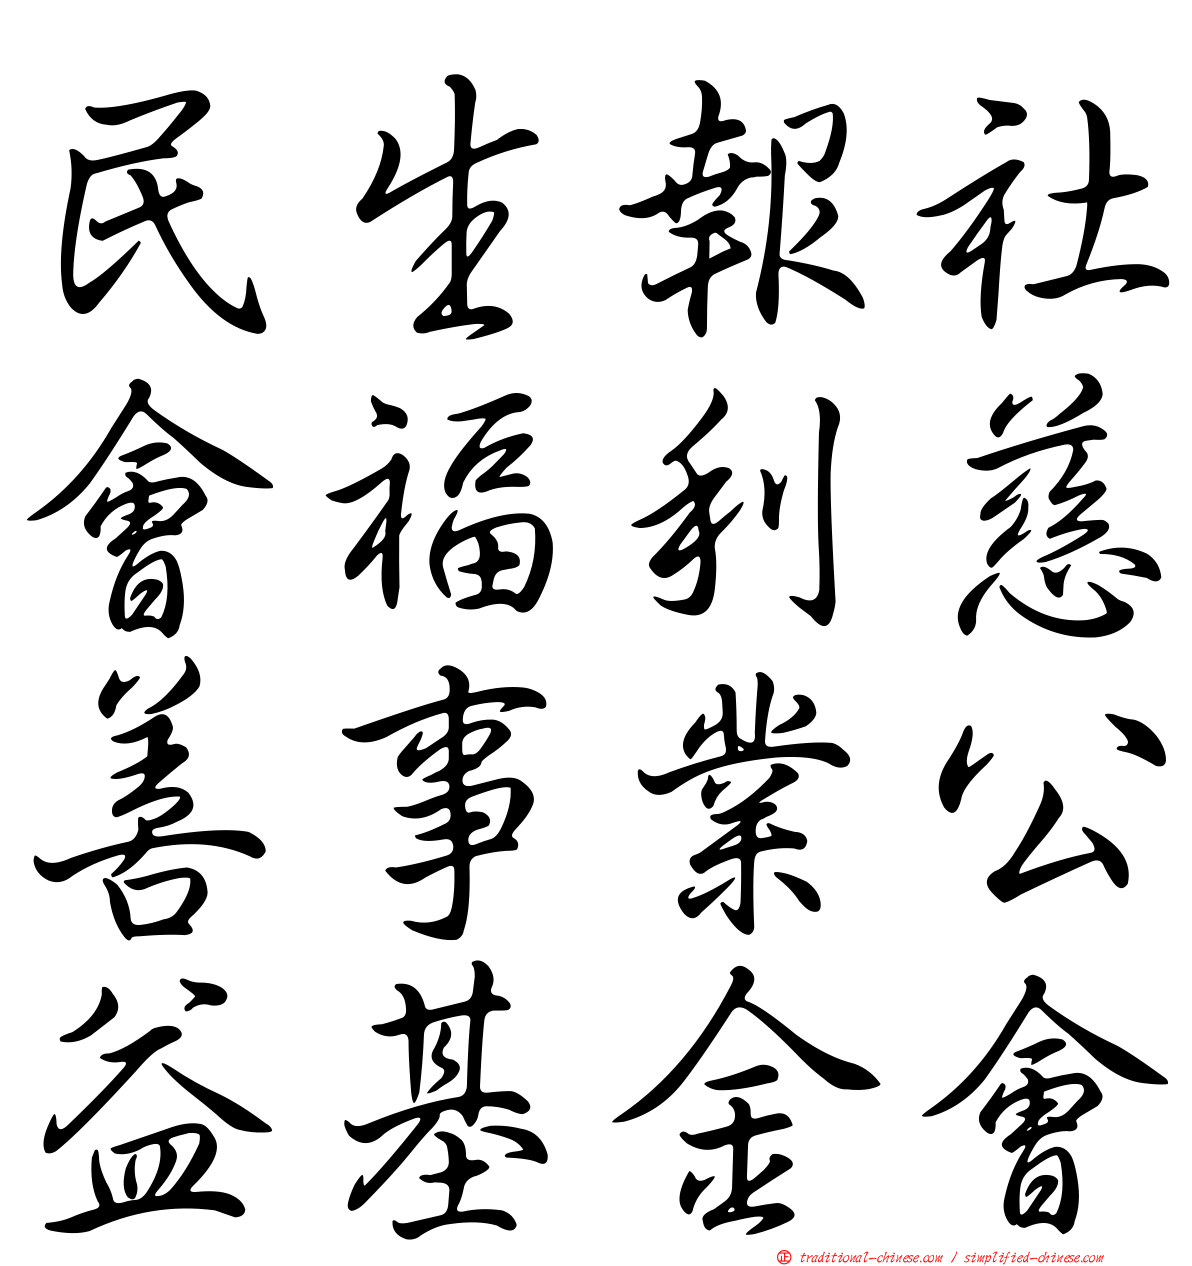 民生報社
會福利慈
善事業公
益基金會
正 traditional-chinese.com / simplified-chinese.com